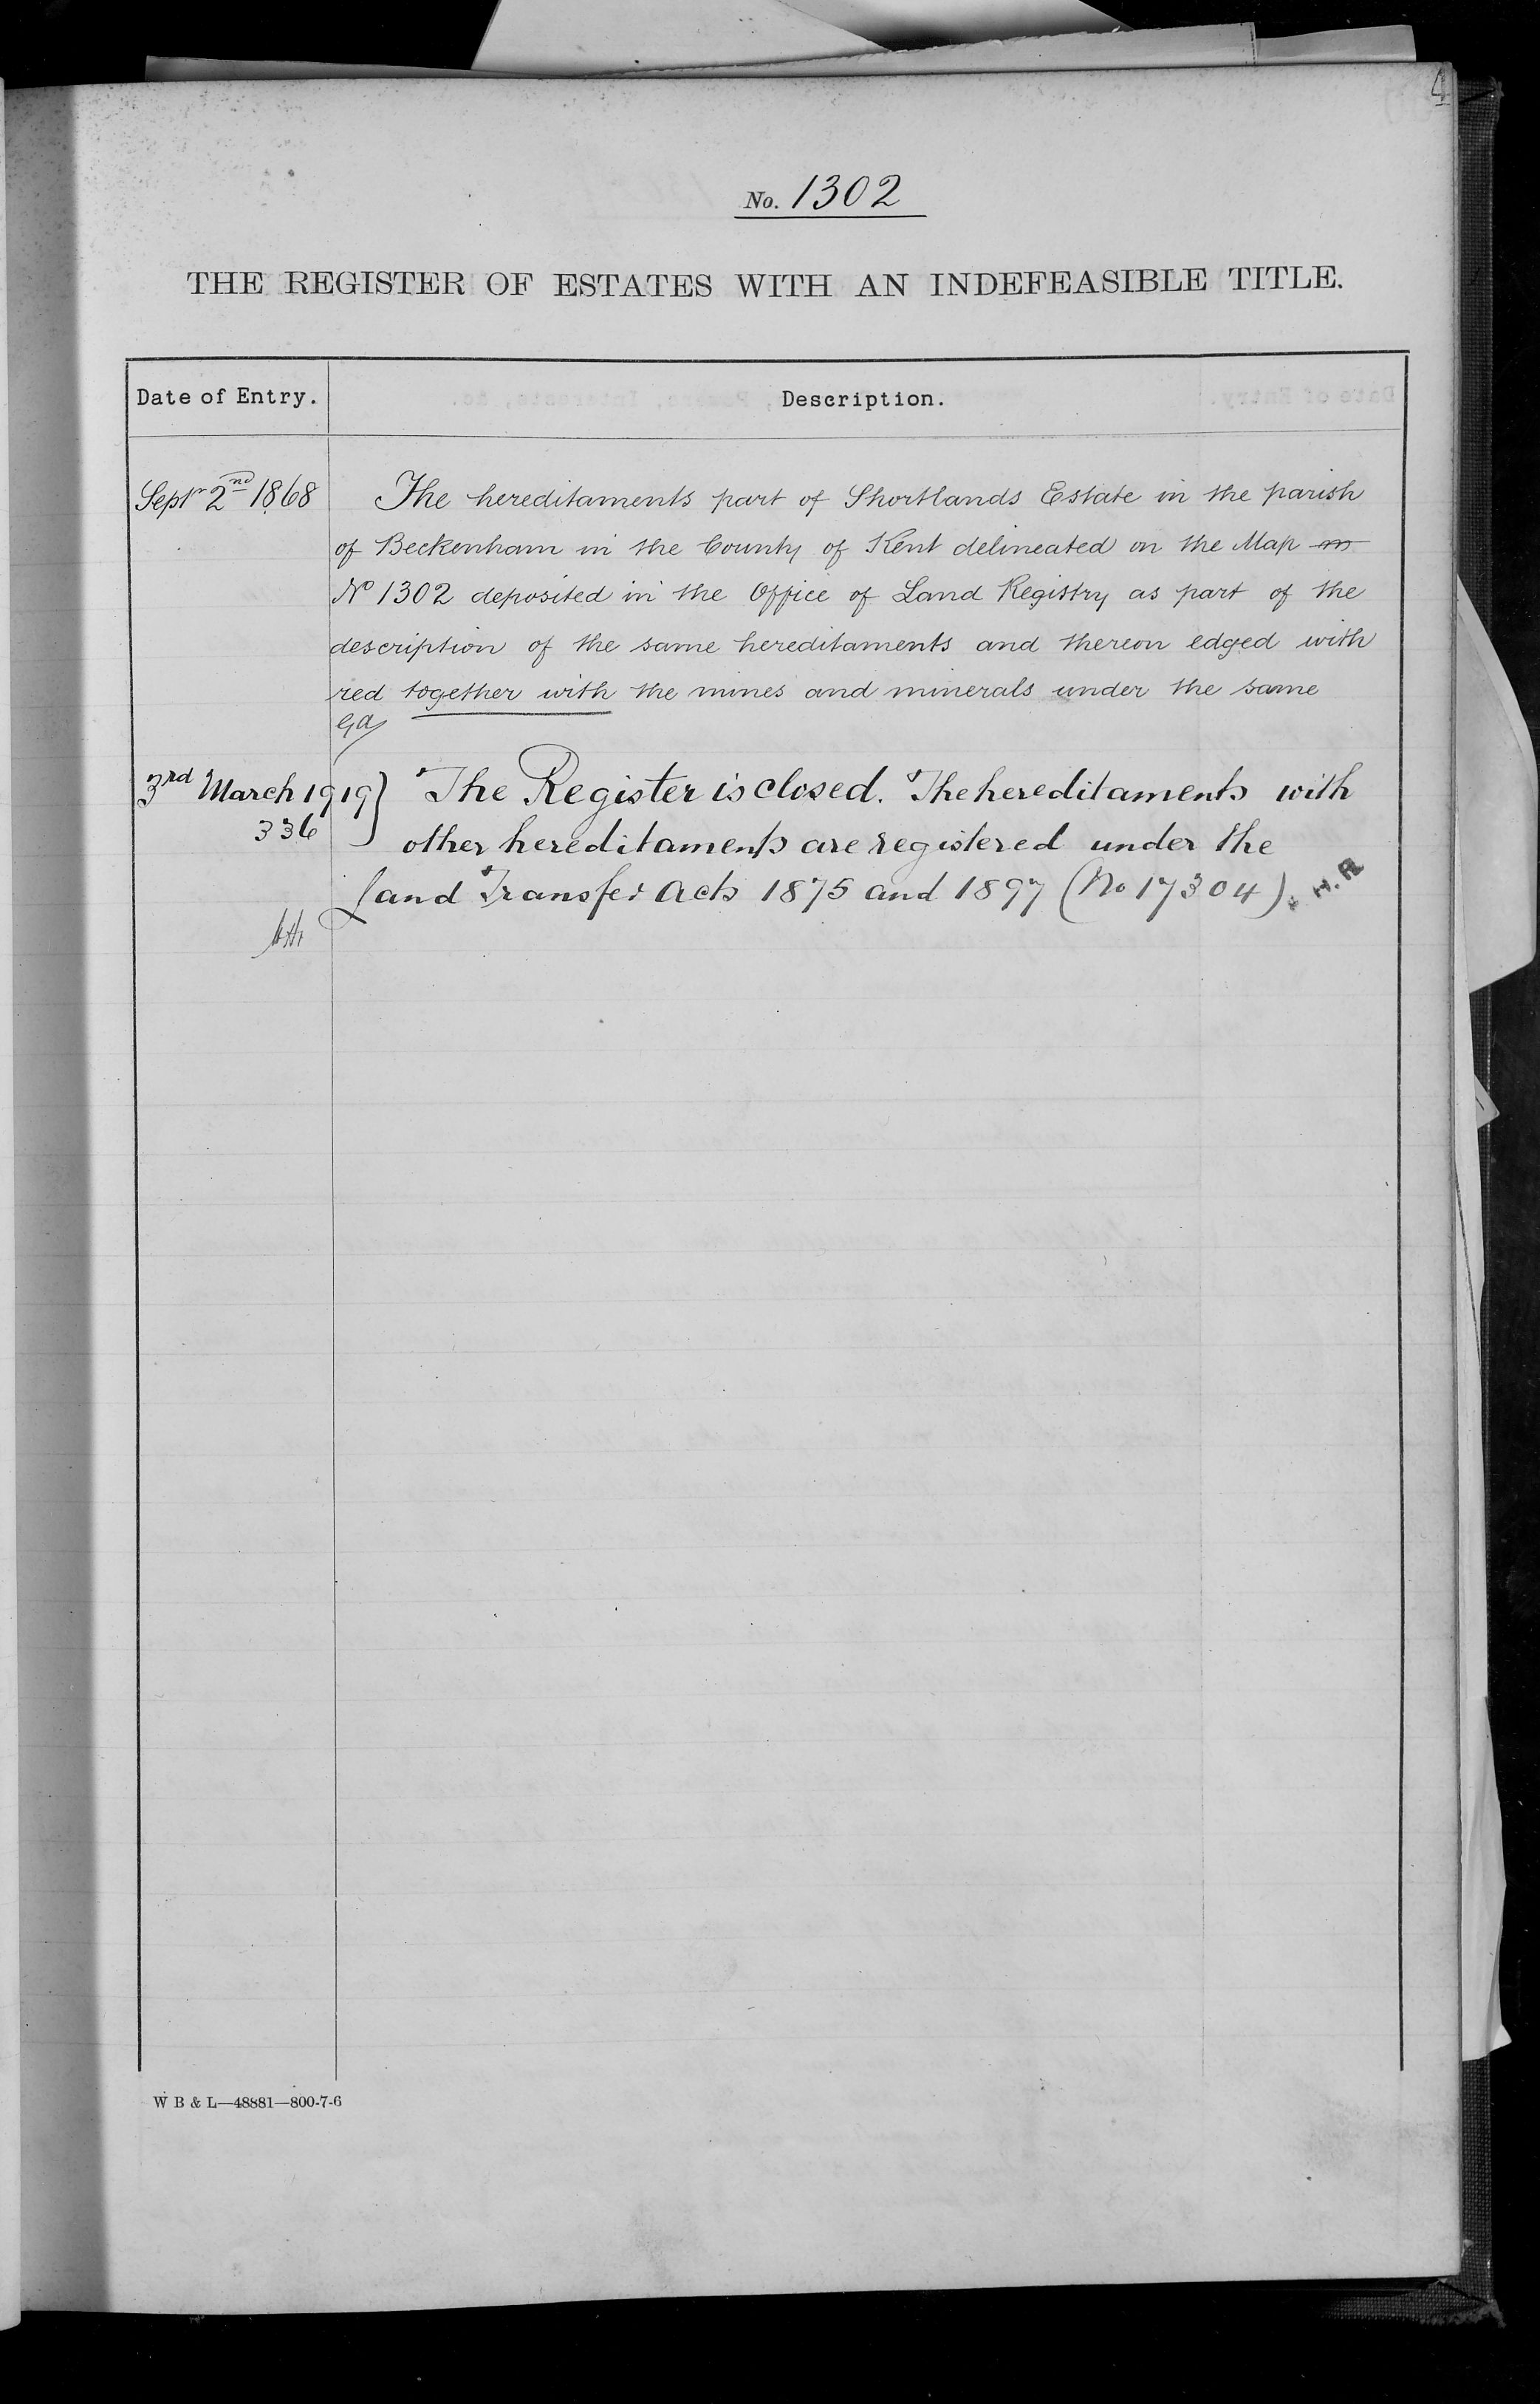 4
No. 1302
THE REGISTER OF ESTATES WITH AN INDEFEASIBLE TITLE.
Date of Entry.
Description.
Septr 2nd 1868
The hereditaments part of Shortlands Estate in the parish
of Beckenham in the County of Kent delineated on the Map
No 1302 deposited in the Office of Land Registry as part of the
description of the same hereditaments and thereon edged with
red together with the mines and minerals under the same
3rd March 1919
336
The Register is closed. The hereditaments with
other hereditaments are registered under the
Land Transfer Acts 1875 and 1897 (No 17304).
H.R
W B & L—48881—800-7-6